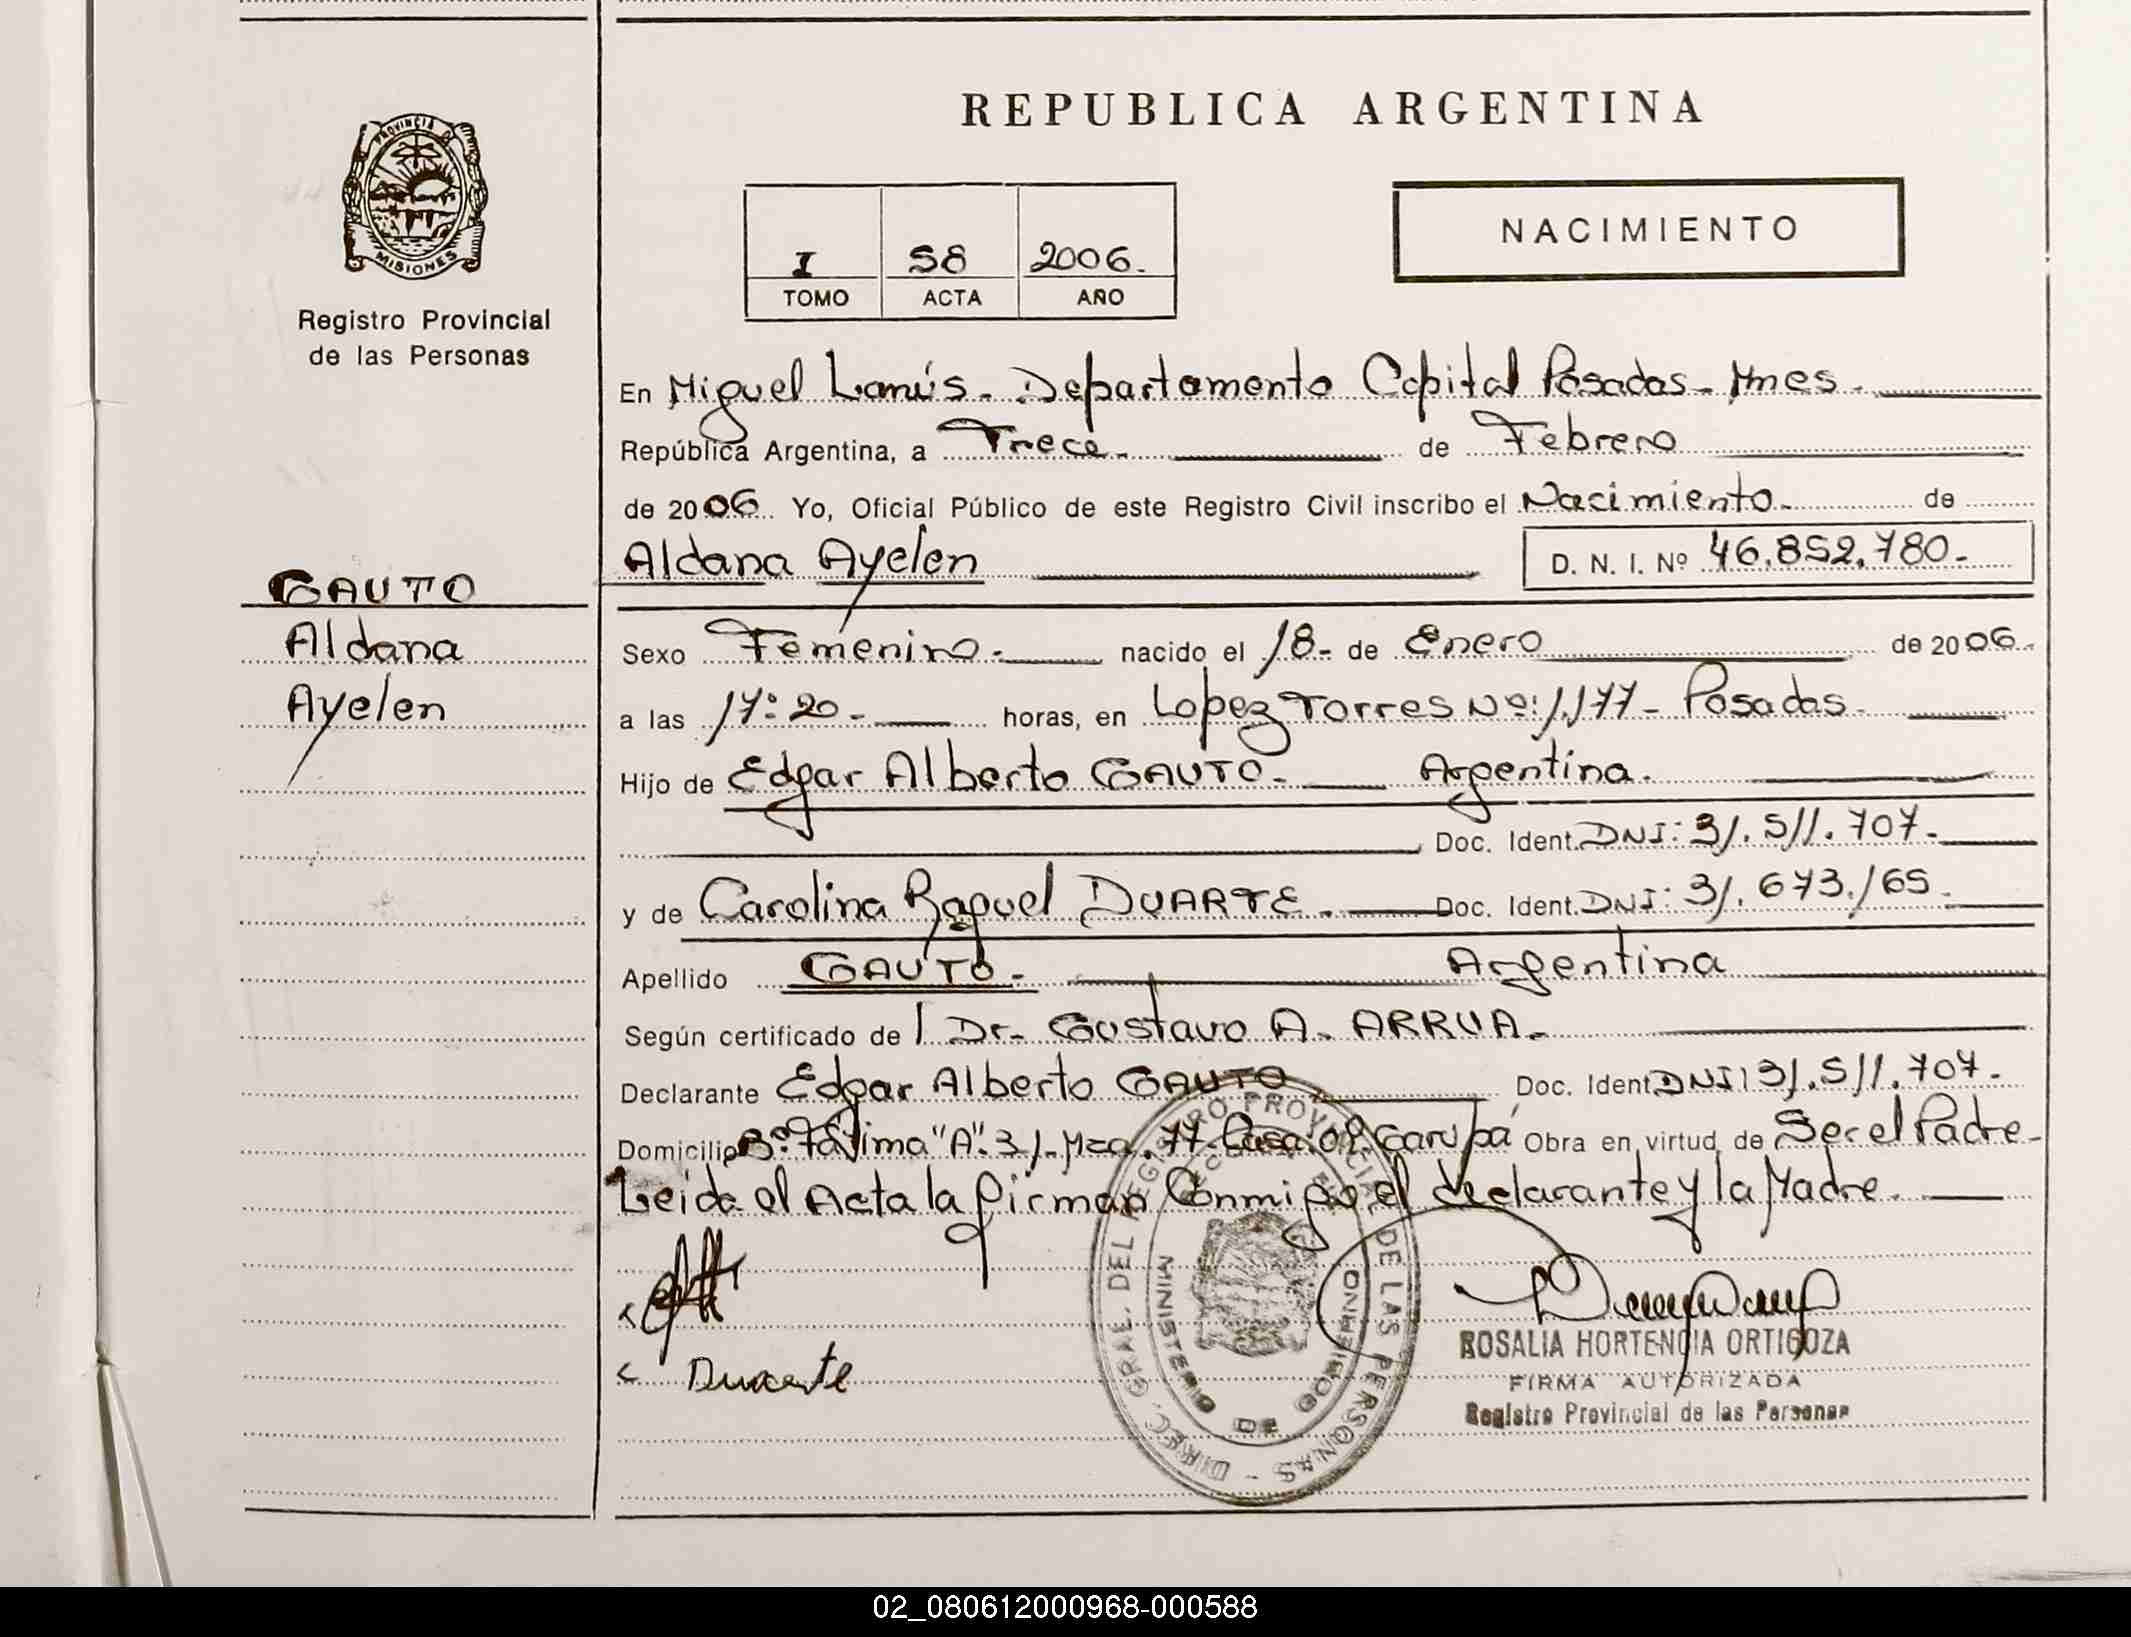 REPUBLICA ARGENTINA
PROVINCIA DE
MISIONES
Registro Provincial
de las Personas
I 58 2006.
TOMO ACTA AÑO
NACIMIENTO
En Miguel Lanús - Departamento Capital Posadas - Mnes -
República Argentina, a Trece - de Febrero
de 2006 Yo, Oficial Público de este Registro Civil inscribo el Nacimiento de
Aldana Ayelen D. N. I. Nº 46.852.780 -
GAUTO
Aldana
Ayelen
Sexo Femenino - nacido el 18 - de Enero de 2006
a las 17:20 - horas, en Lopez Torres Nº: 1.177 - Posadas -
Hijo de Edgar Alberto GAUTO - Argentina.
Doc. Ident. DNI: 31.511.707 -
y de Carolina Raquel DUARTE. Doc. Ident. DNI: 31.673.165 -
Apellido GAUTO - Argentina
Según certificado de Dr - Gustavo A. ARRUA -
Declarante Edgar Alberto GAUTO Doc. Ident DNI: 31.511.707 -
Domicilio Bº: Fátima "A". 31 - Mza. 77 - Casa: Garupá Obra en virtud de Ser el Padre -
Leida el Acta la firman Conmigo el declarante y la Madre
Duarte
DIREC. GRAL. DEL REGISTRO PROVINCIAL DE LAS PERSONAS -
MINISTERIO DE GOBIERNO
ROSALIA HORTENCIA ORTIGOZA
FIRMA AUTORIZADA
Registro Provincial de las Personas
02_080612000968-000588